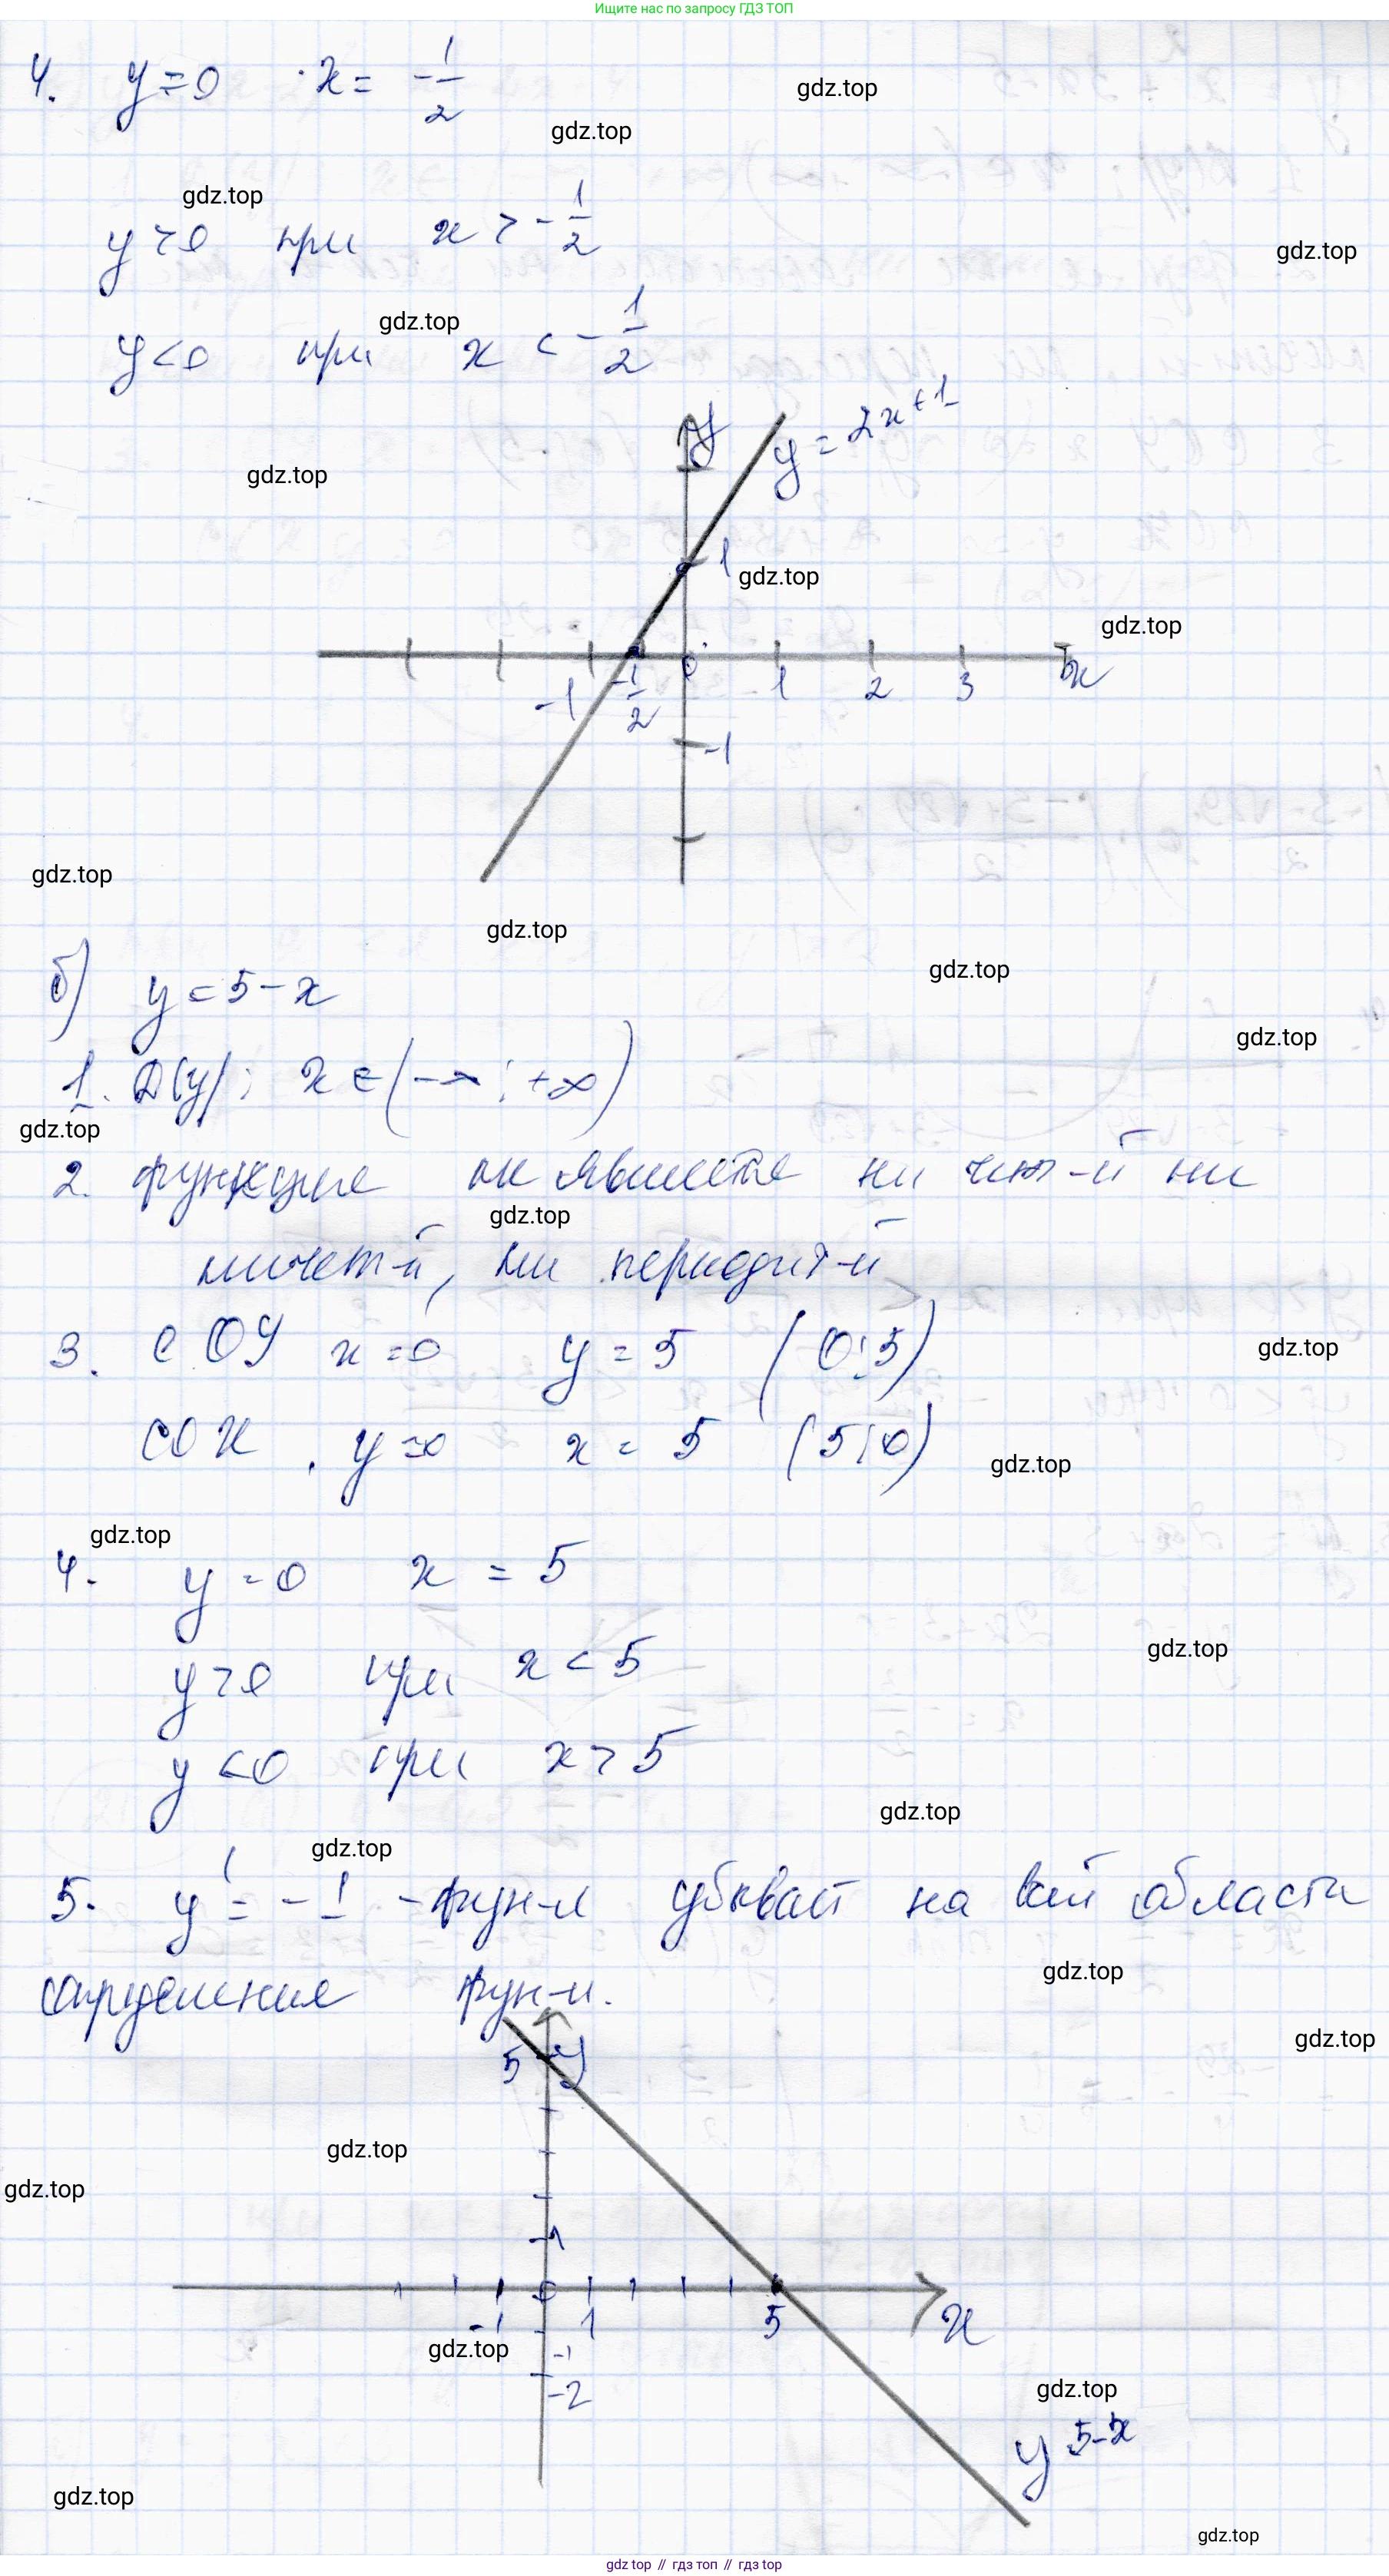 Ищите нас по запросу ГДЗ ТОП
4. y = 0 x = -1/2
gdz.top
gdz.top
gdz.top
y > 0 при x > -1/2
gdz.top
gdz.top
y < 0 при x < -1/2
y
y = 2x + 1
gdz.top
1
gdz.top
gdz.top
-1 -1/2 0 1 2 3 x
-1
gdz.top
gdz.top
gdz.top
б) y = 5 - x
gdz.top
1. D(y): x ∈ (-∞; +∞)
gdz.top
2. функция не является ни чет-й ни
gdz.top
нечет-й, ни периодич-й
3. с ОУ x = 0 y = 5 (0; 5)
gdz.top
с ОХ y = 0 x = 5 (5; 0)
gdz.top
gdz.top
4. y = 0 x = 5
gdz.top
y > 0 при x < 5
y < 0 при x > 5
gdz.top
gdz.top
5. y' = -1 - фун-я убывает на всей области
gdz.top
определения фун-и.
gdz.top
5 y
gdz.top
gdz.top
1
0
-1 1 5 x
gdz.top
-1
-2
gdz.top
y 5-x
gdz.top
gdz.top
gdz.top // гдз топ // гдз top